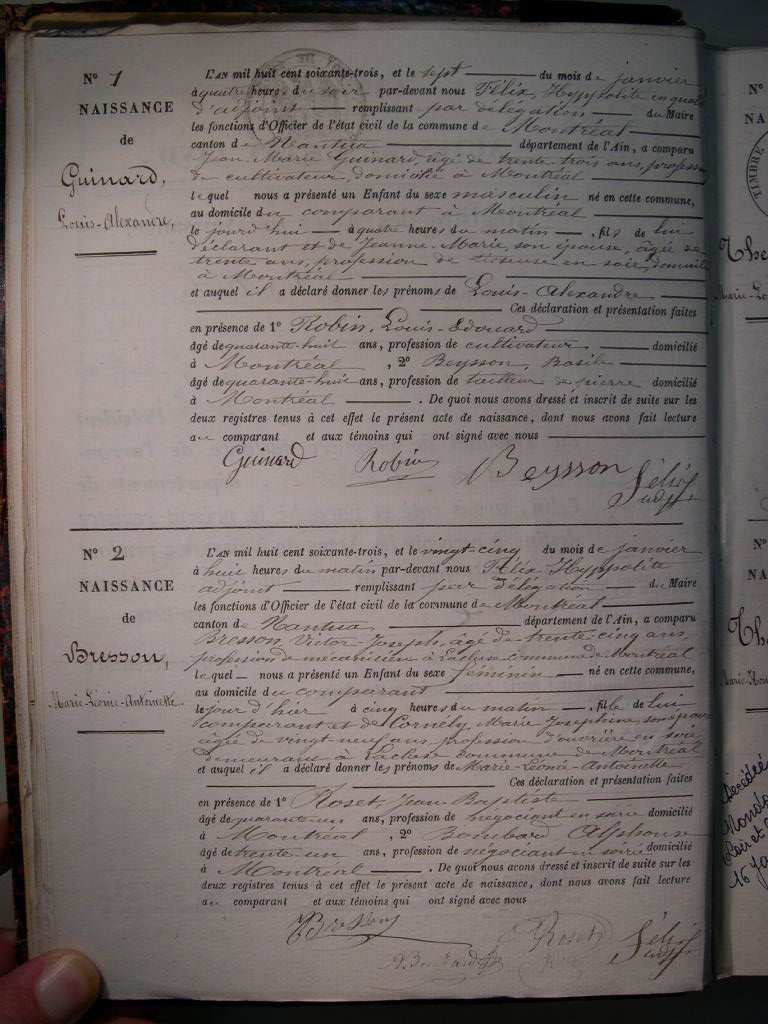 N° 1
NAISSANCE
de
Guinard,
Louis-Alexandre,
L'AN mil huit cent soixante-trois, et le sept du mois de janvier
à quatre heures du soir par-devant nous Félix, Hyppolite en qualité
d'adjoint remplissant par délégation du Maire
les fonctions d'Officier de l'état civil de la commune de Montréal
canton de Nantua département de l'Ain, a comparu
Jean-Marie Guinard, âgé de trente-trois ans, profession
de cultivateur, domicilié à Montréal
lequel nous a présenté un Enfant du sexe masculin né en cette commune,
au domicile du comparant à Montréal
le jourd'hui à quatre heures du matin, fils de lui
déclarant et de Jeanne-Marie, son épouse, âgée de
trente ans, profession de tisseuse en soie, domiciliée
à Montréal
et auquel il a déclaré donner les prénoms de Louis-Alexandre
Ces déclaration et présentation faites
en présence de 1° Robin, Louis-Edouard
âgé de quarante-huit ans, profession de cultivateur domicilié
à Montréal, 2° Beysson, Basile
âgé de quarante-huit ans, profession de tailleur de pierre domicilié
à Montréal. De quoi nous avons dressé et inscrit de suite sur les
deux registres tenus à cet effet le présent acte de naissance, dont nous avons fait lecture
au comparant et aux témoins qui ont signé avec nous
Guinard Robin Beysson Félix
N° 2
NAISSANCE
de
Bresson,
Marie-Léonie-Antoinette
L'AN mil huit cent soixante-trois, et le vingt-cinq du mois de janvier
à huit heures du matin par-devant nous Félix Hyppolite
adjoint remplissant par délégation du Maire
les fonctions d'Officier de l'état civil de la commune de Montréal
canton de Nantua département de l'Ain, a comparu
Bresson, Victor-Joseph, âgé de trente-cinq ans,
profession de mécanicien à Lacluse commune de Montréal
lequel nous a présenté un Enfant du sexe féminin né en cette commune,
au domicile du comparant
le jour d'hier à cinq heures du matin, fille de lui
comparant et de Cornély, Marie Josephine, son épouse
âgée de vingt neuf ans, profession d'ouvrière en soie
demeurant à Lacluse commune de Montréal
et auquel il a déclaré donner les prénoms de Marie-Léonie-Antoinette
Ces déclaration et présentation faites
en présence de 1° Roset, Jean Baptiste
âgé de quarante un ans, profession de négociant en soie domicilié
à Montréal, 2° Bombard Alphonse
âgé de trente-un ans, profession de négociant en soirie domicilié
à Montréal. De quoi nous avons dressé et inscrit de suite sur les
deux registres tenus à cet effet le présent acte de naissance, dont nous avons fait lecture
au comparant et aux témoins qui ont signé avec nous
Bresson Roset Félix
N°
NA
TIMBRE
The
Marie-Lo
N°
NA
Tho
Marie-
Décédée
16 Ja